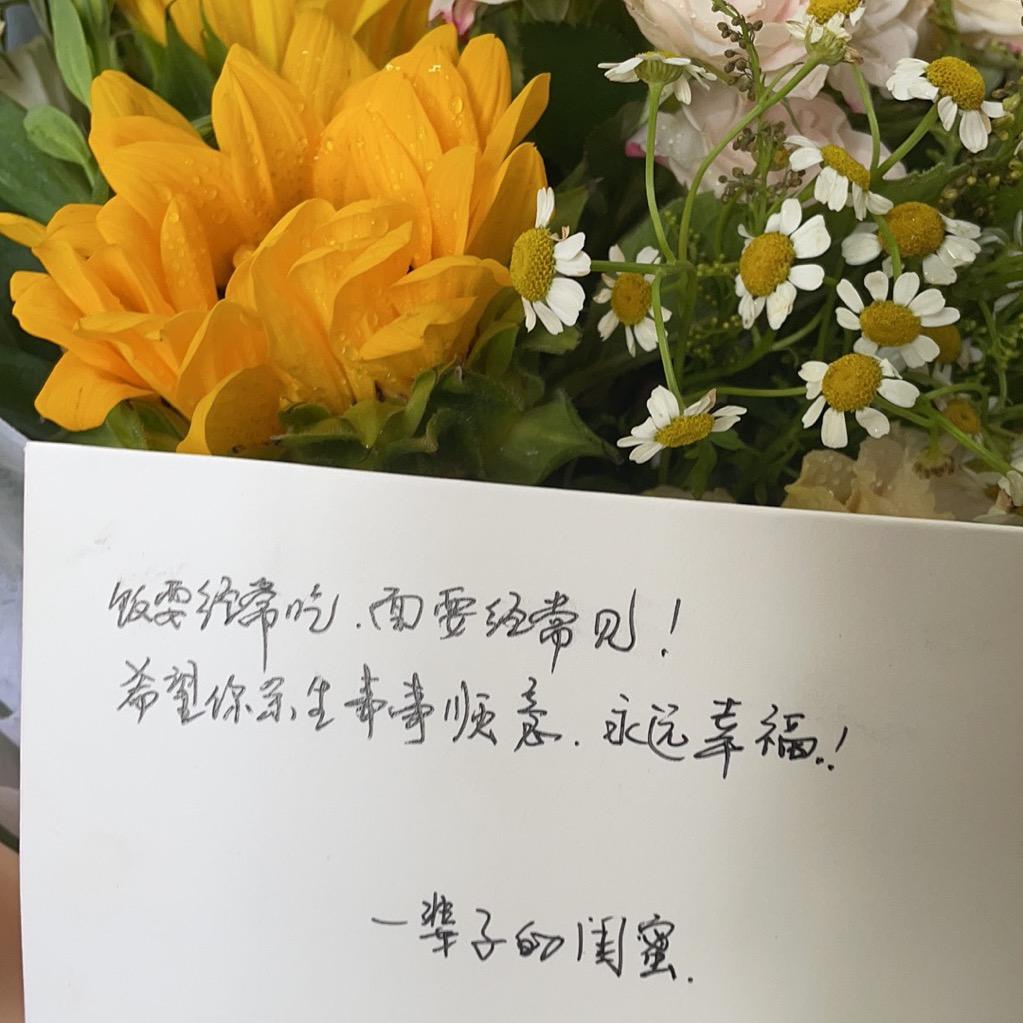 饭要经常吃.面要经常见!
希望你余生事事顺意.永远幸福!
一辈子的闺蜜.